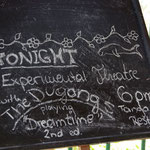 TONIGHT
Experimental Theatre
with
The Dugongs 6pm
playing Tanda
Dreamtime Rest
2nd ed